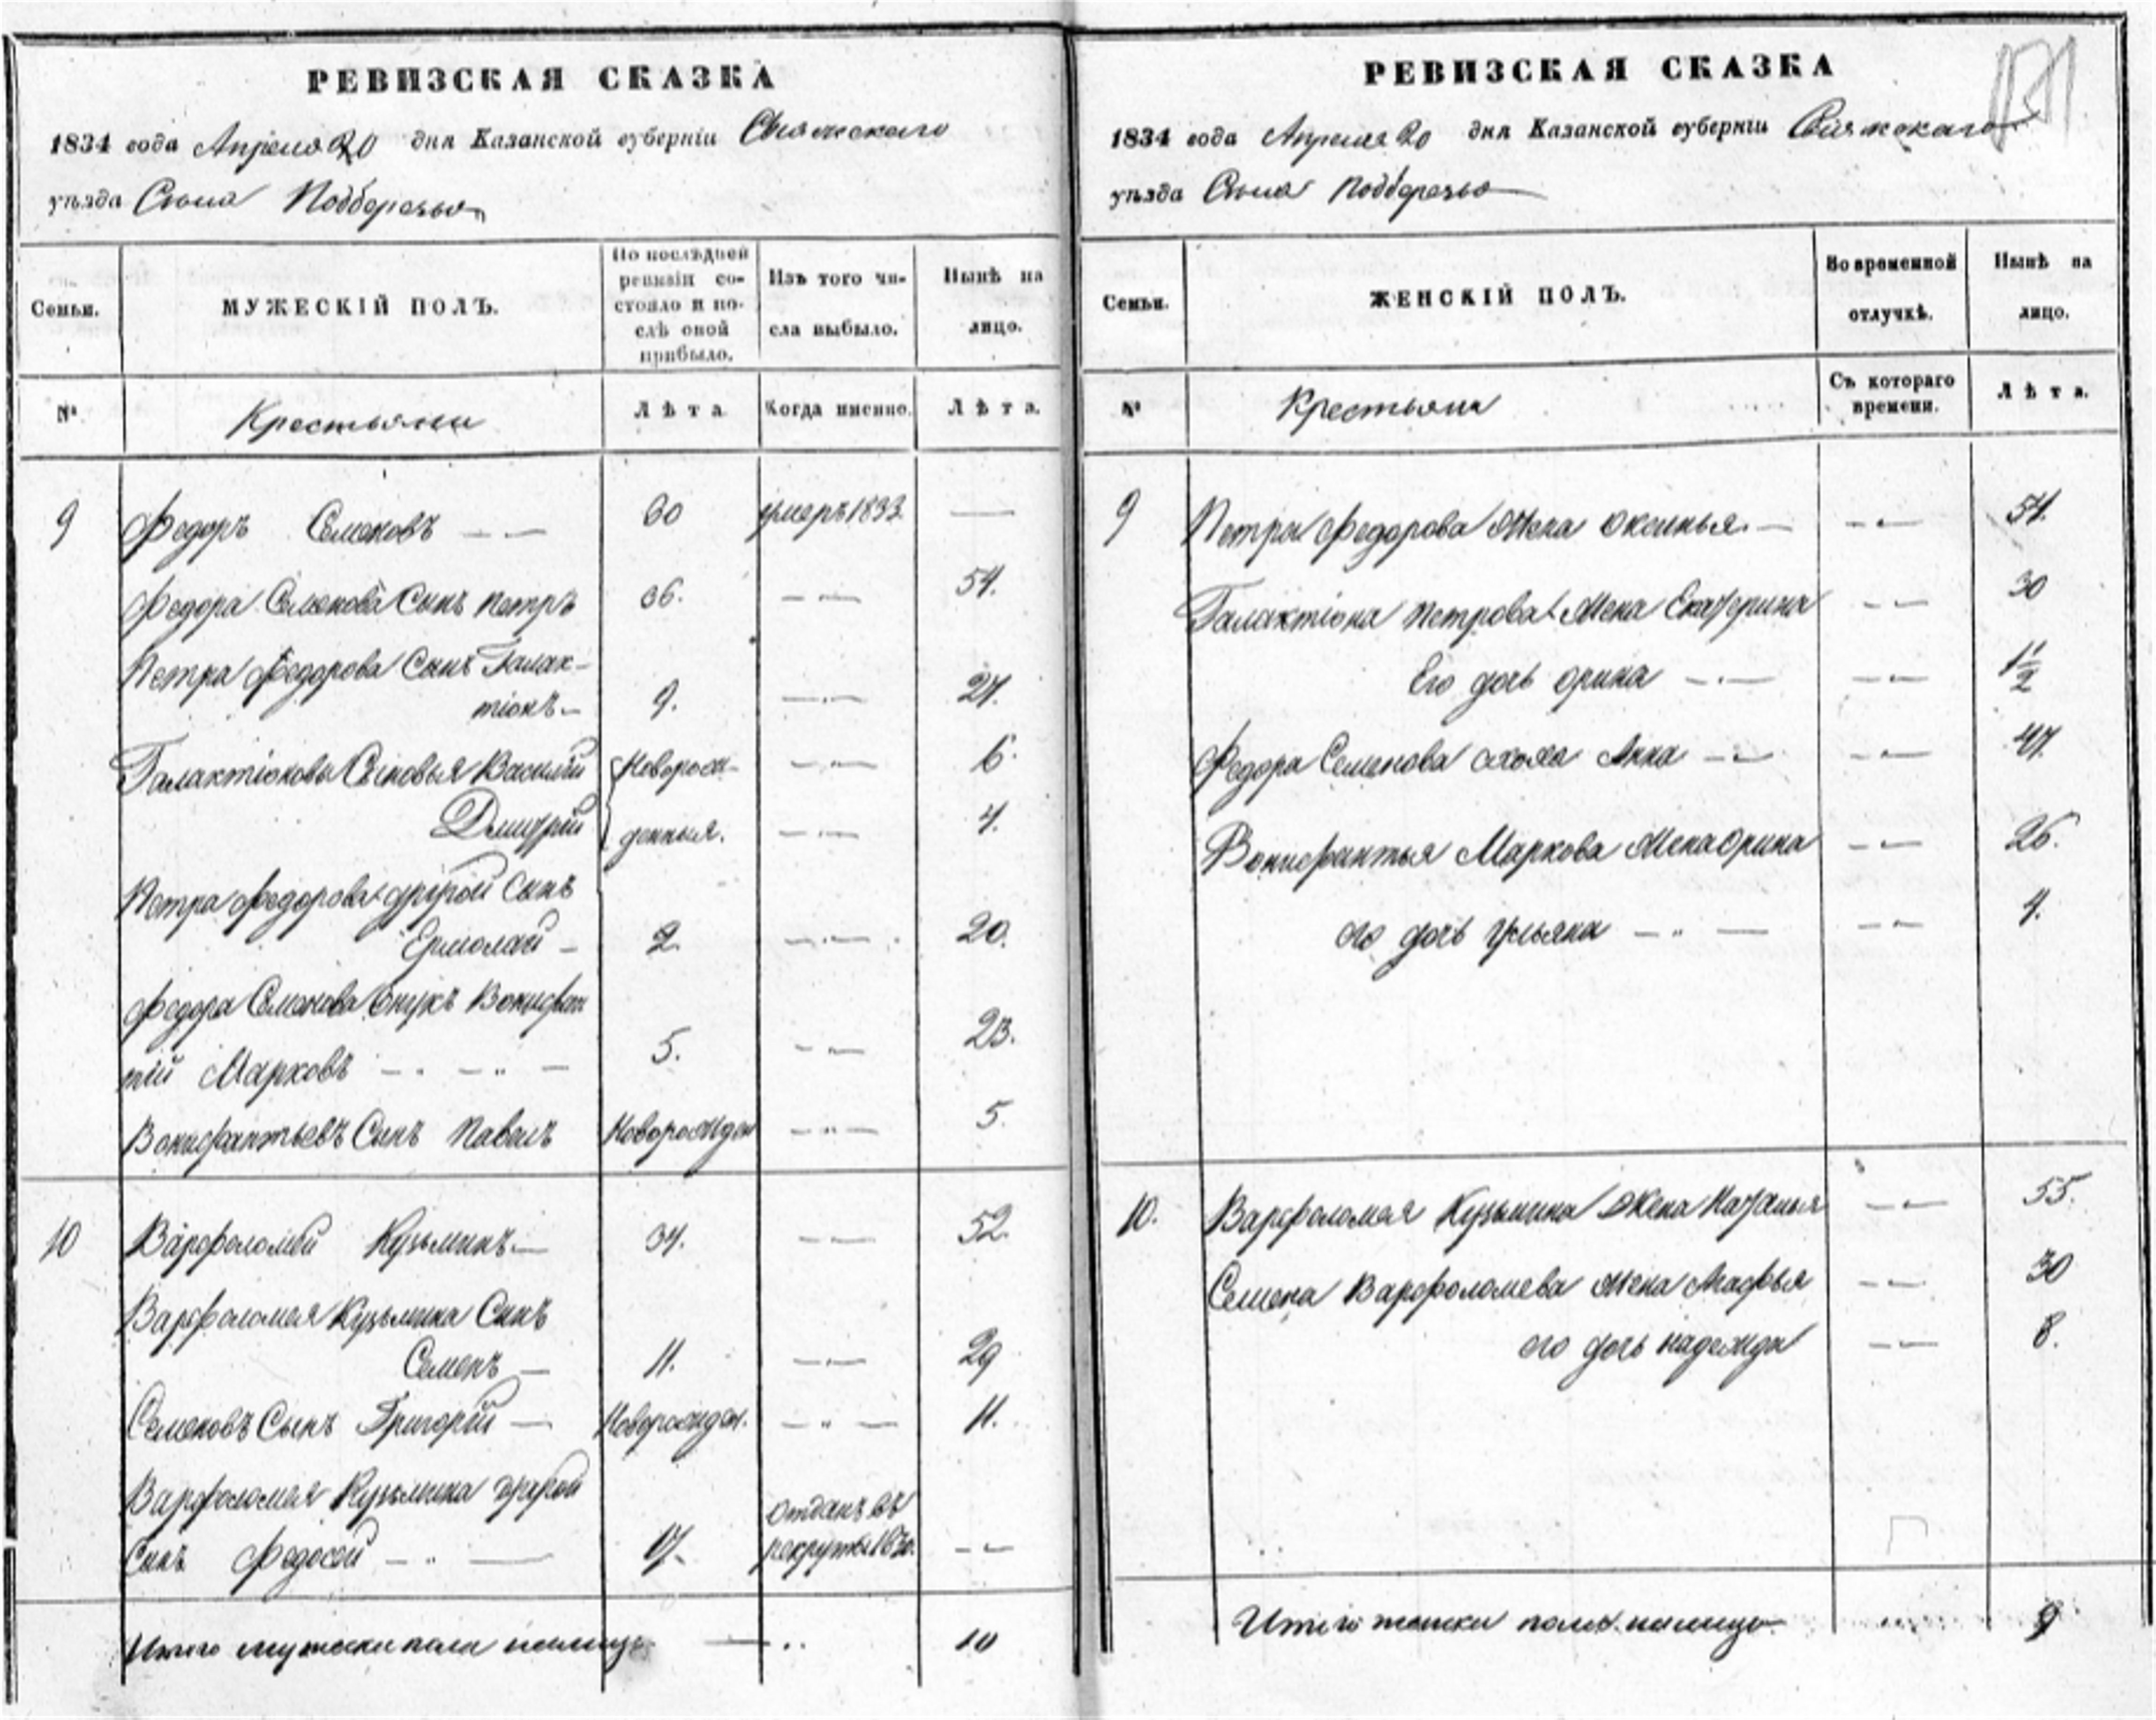 РЕВИЗСКАЯ СКАЗКА
1834 года Апреля 20 дня Казанской губерніи Свіяжскаго
уѣзда Села Подберезья
Семьи. МУЖЕСКІЙ ПОЛЪ. По послѣдней ревизіи состояло и послѣ оной прибыло. Изъ того числа выбыло. Нынѣ на лицо.
№ Крестьяни Лѣта Когда именно. Лѣта.
9 Федоръ Семеновъ — — 60 умеръ 1833 —
Федора Семенова Сынъ Петръ 36. — — 54.
Петра Федорова Сынъ Галак-
тіонъ — 9. — — 27.
Галактіоновы Сыновья Василій Новорож- — — 6.
Дмитрій денныя. — — 4.
Петра Федорова другой Сынъ
Ермолай — 2. — — 20.
Федора Семенова Внукъ Вонифан
тій Марковъ — — — 5. — — 23.
Вонифантьевъ Сынъ Павелъ Новорожден — — 5.
10 Варфоломей Кузьминъ — 34. — — 52.
Варфоломея Кузьмина Сынъ
Семенъ — 11. — — 29
Семеновъ Сынъ Григорій — Новорожден. — — 11.
Варфоломея Кузьмина другой отданъ въ
Сынъ Федосей — — 17. рекруты 1830. — —
Итого мужеска пола налицо — 10
РЕВИЗСКАЯ СКАЗКА
1834 года Апреля 20 дня Казанской губерніи Свіяжскаго
уѣзда Села Подберезья
Семьи. ЖЕНСКІЙ ПОЛЪ. Во временной отлучкѣ. Нынѣ на лицо.
№ Крестьяни Съ котораго времени. Лѣта.
9 Петра Федорова Жена Оксинья. — — — 51.
Галактіона Петрова Жена Екатерина — — 30
Его дочь Орина — — — — 1 1/2
Федора Семенова сноха Анна — — — — 47.
Вонифантья Маркова Жена Орина — — 26.
его дочь Ульяна — — — — 4.
10. Варфоломея Кузьмина Жена Наталья — — 55.
Семена Варфоломева Жена Мафья — — 30
его дочь надежда — — 8.
Итого женска пола налицо 9